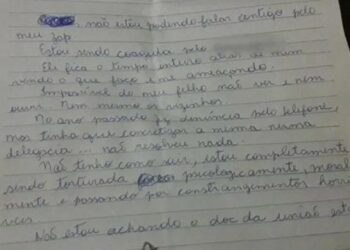 , não estou podendo falar contigo pelo
meu zap.
Estou sendo coagida pelo
Ele fica o tempo inteiro atrás de mim
vendo o que faço e me ameaçando.
Impossível do meu filho não ver e nem
ouvir. Nem mesmo os vizinhos.
No ano passado fiz denúncia pelo telefone,
mas tinha que concretizar a mesma numa
delegacia ... não resolveu nada.
Não tenho como sair, estou completamente
sendo torturada psicologicamente, moral
mente e passando por constrangimentos horrí
veis.
Não estou achando o doc da união est